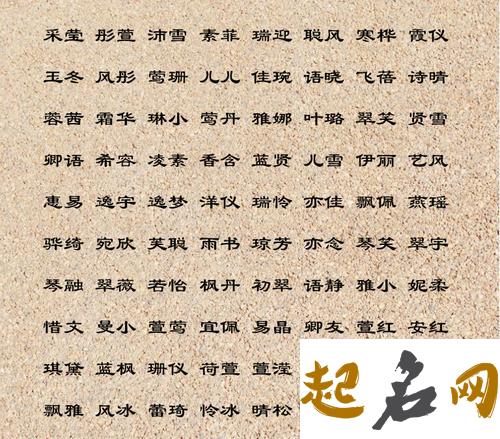 采莹 彤萱 沛雪 素菲 瑞迎 聪风 寒桦 霞仪
玉冬 风彤 莺珊 儿儿 佳琬 语晓 飞蓓 诗晴
蓉茜 霜华 琳小 莺丹 雅娜 叶璐 翠芙 贤雪
卿语 希容 凌素 香含 蓝贤 儿雪 伊丽 艺风
惠易 逸宇 逸梦 洋仪 瑞怜 亦佳 飘佩 燕瑶
骅绮 宛欣 芙聪 雨书 琼芳 亦念 琴芙 翠宇
琴融 翠薇 若怡 枫丹 初翠 语静 雅小 妮柔
惜文 曼小 萱莺 宜佩 易晶 卿友 萱红 安红
琪黛 蓝枫 珊仪 荷萱 萱滢
飘雅 风冰 蕾琦 怜冰 晴松
起名网